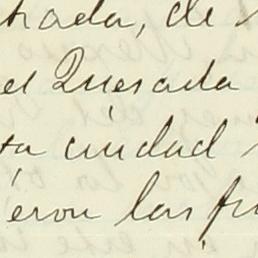 trada, de
el Quesada
ta ciudad
eron las fr